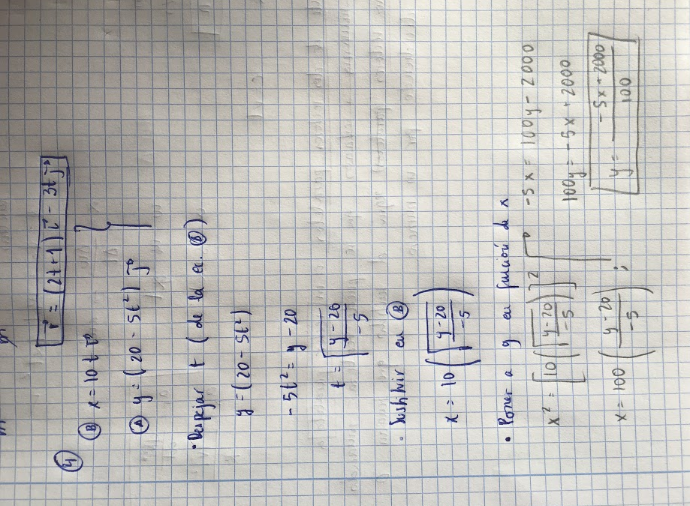 ④ r⃗ = (2t+1) i⃗ - 3t j⃗
Ⓑ x = 10t i⃗
Ⓐ y = (20 - 5t²) j⃗
• Despejar t (de la ec. Ⓑ)
y = (20 - 5t²)
-5t² = y - 20
t = √((y-20)/-5)
• Sustituir en Ⓑ
x = 10 (√((y-20)/-5))
• Poner a y en función de x
x² = [10 (√((y-20)/-5))]²
x = 100 ((y-20)/-5) ;
-5x = 100y - 2000
100y = -5x + 2000
y = (-5x + 2000)/100